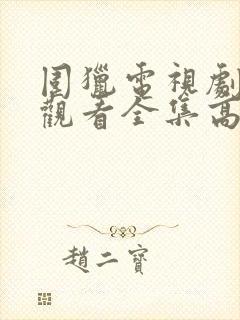 围獵電視劇
觀看全集高
趙二寶